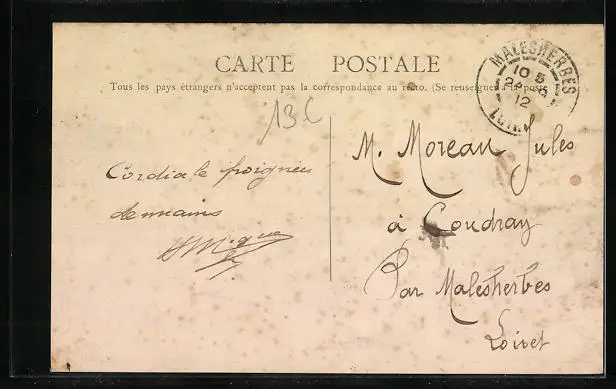 CARTE POSTALE
Tous les pays étrangers n'acceptent pas la correspondance au recto. (Se renseigner à la poste
MALESHERBES
10 5
12
LOIRET
13 C
Cordiale poignée
de mains
M. Moreau Jules
à Coudray
Par Malesherbes
Loiret